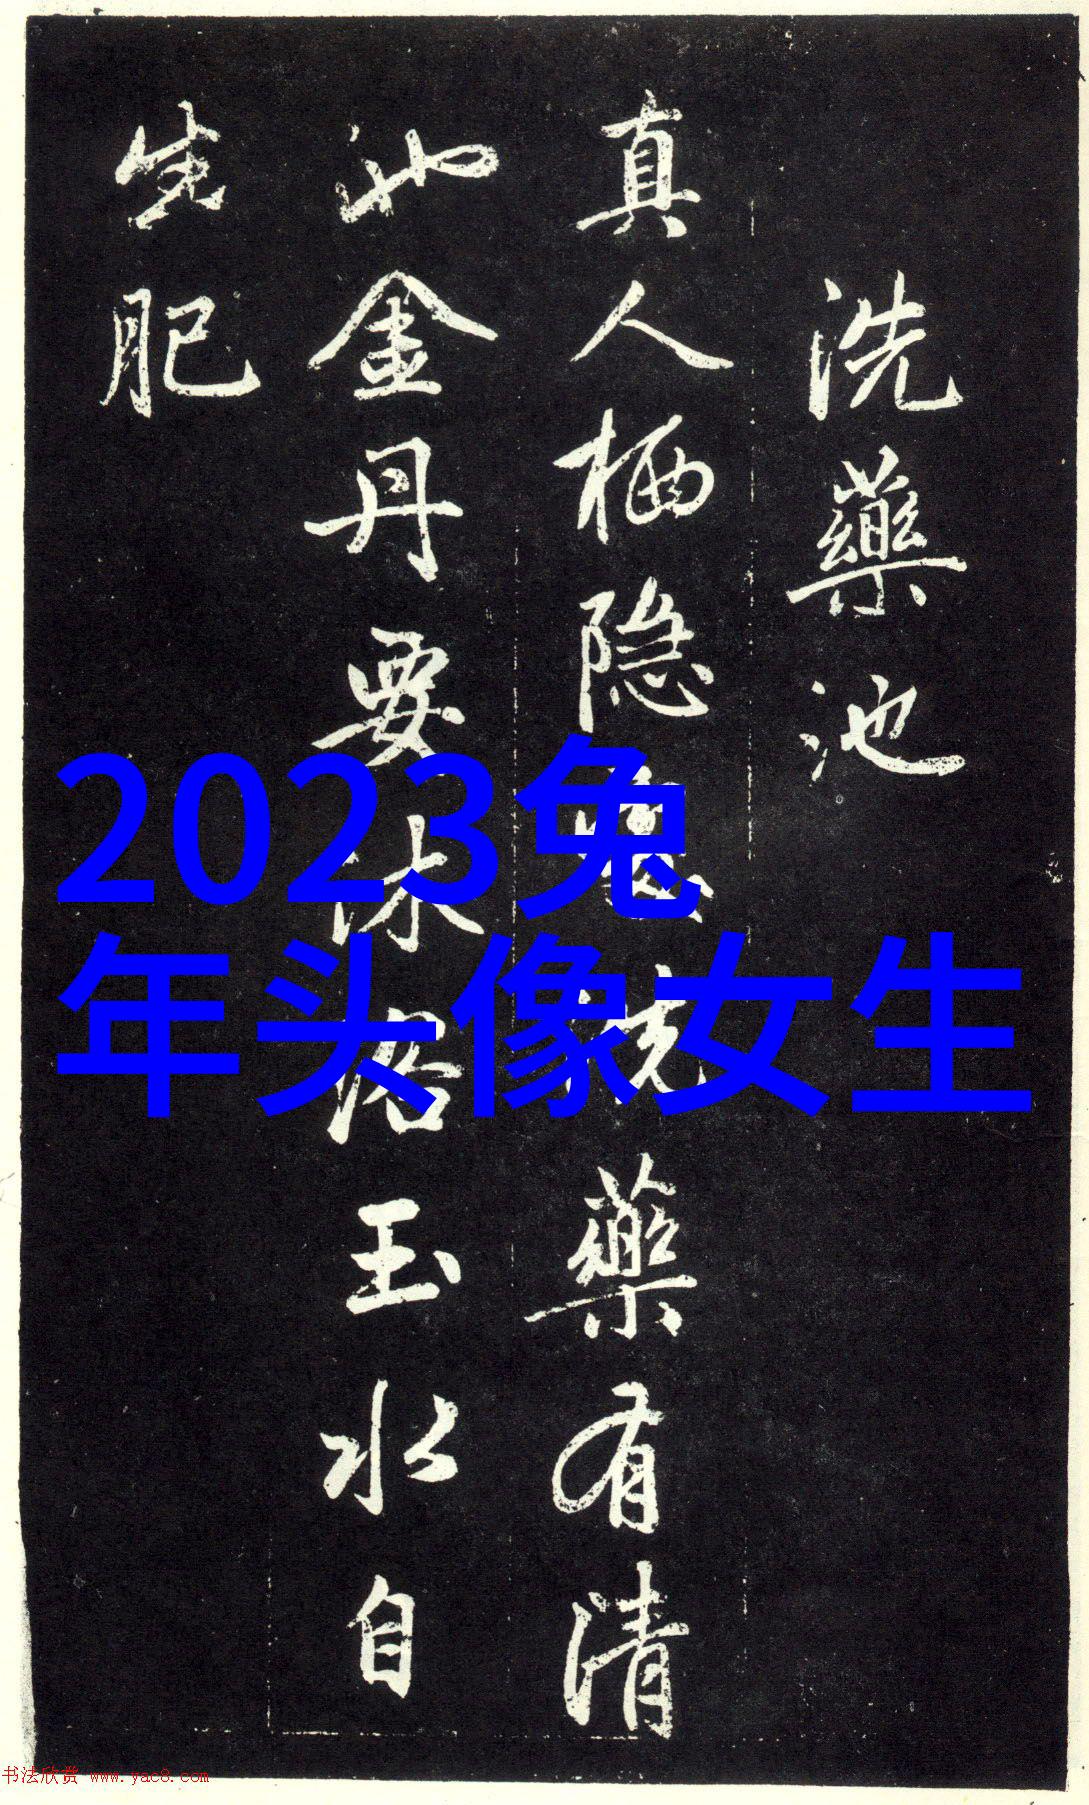 洗藥池
真人栖隐洗藥有清
池金丹要沐浴玉水自
生肥
2023兔
年头像女生
书法欣赏 www.yac8.com